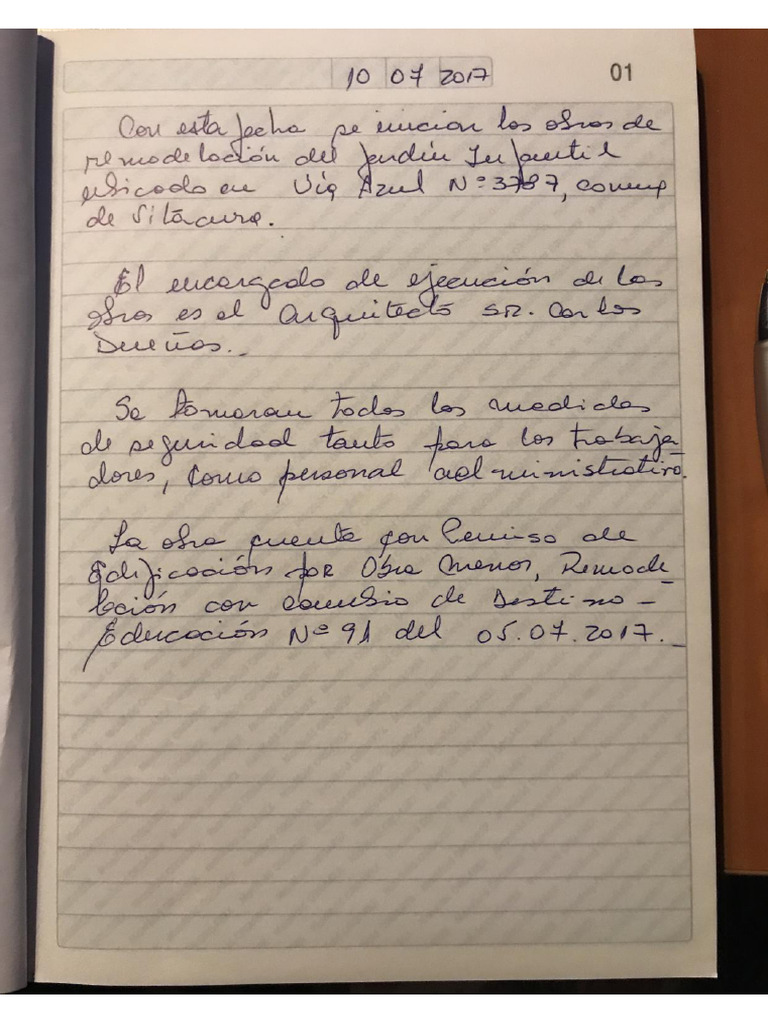 10 07 2017
01
Con esta fecha se inician las obras de
remodelación del Jardín Infantil
ubicado en Vía Azul N° 3787, comuna
de Vitacura.
El encargado de ejecución de las
obras es el Arquitecto SR. Carlos
Dueñas.
Se tomaran todas las medidas
de seguridad tanto para los trabaja
dores, como personal administrativo.
La obra cuenta con Permiso de
Edificación por Obra Menor, Remode
lación con cambio de Destino -
Educación N° 91 del 05.07.2017.